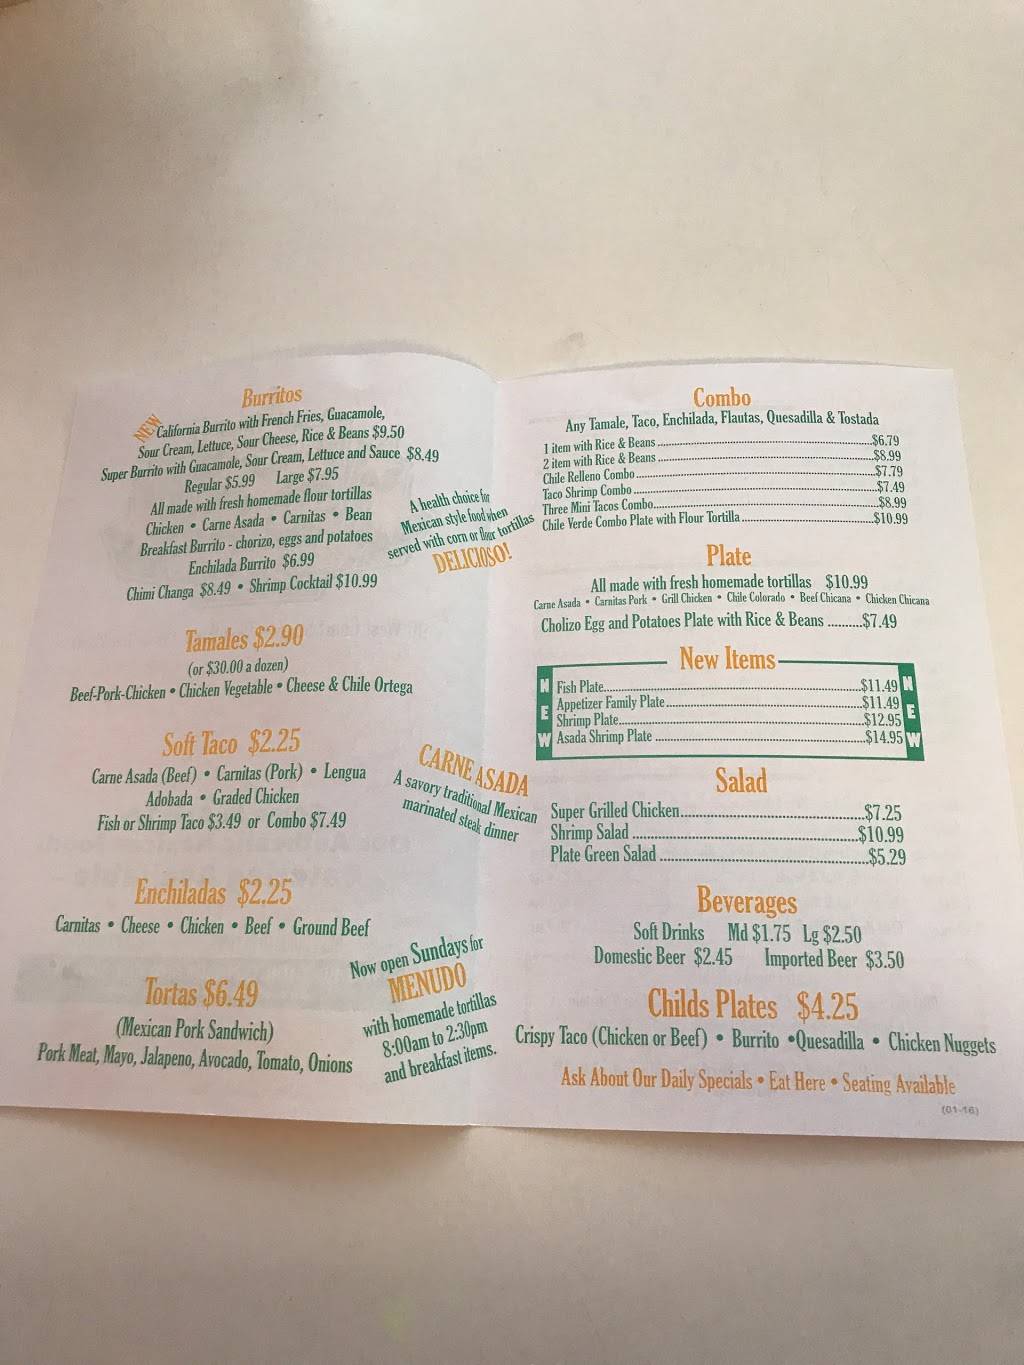 Burritos
NEW
California Burrito with French Fries, Guacamole,
Sour Cream, Lettuce, Sour Cheese, Rice & Beans $9.50
Super Burrito with Guacamole, Sour Cream, Lettuce and Sauce $8.49
Regular $5.99 Large $7.95
All made with fresh homemade flour tortillas
Chicken • Carne Asada • Carnitas • Bean
Breakfast Burrito - chorizo, eggs and potatoes
Enchilada Burrito $6.99
Chimi Changa $8.49 • Shrimp Cocktail $10.99
A health choice for
Mexican style food when
served with corn or flour tortillas
DELICIOSO!
Tamales $2.90
(or $30.00 a dozen)
Beef-Pork-Chicken • Chicken Vegetable • Cheese & Chile Ortega
Soft Taco $2.25
Carne Asada (Beef) • Carnitas (Pork) • Lengua
Adobada • Graded Chicken
Fish or Shrimp Taco $3.49 or Combo $7.49
CARNE ASADA
A savory traditional Mexican
marinated steak dinner
Enchiladas $2.25
Carnitas • Cheese • Chicken • Beef • Ground Beef
Tortas $6.49
(Mexican Pork Sandwich)
Pork Meat, Mayo, Jalapeno, Avocado, Tomato, Onions
Now open Sundays for
MENUDO
with homemade tortillas
8:00am to 2:30pm
and breakfast items.
Combo
Any Tamale, Taco, Enchilada, Flautas, Quesadilla & Tostada
1 item with Rice & Beans $6.79
2 item with Rice & Beans $8.99
Chile Relleno Combo $7.79
Taco Shrimp Combo $7.49
Three Mini Tacos Combo $8.99
Chile Verde Combo Plate with Flour Tortilla $10.99
Plate
All made with fresh homemade tortillas $10.99
Carne Asada • Carnitas Pork • Grill Chicken • Chile Colorado • Beef Chicana • Chicken Chicana
Cholizo Egg and Potatoes Plate with Rice & Beans $7.49
New Items
NEW
Fish Plate $11.49
Appetizer Family Plate $11.49
Shrimp Plate $12.95
Asada Shrimp Plate $14.95
NEW
Salad
Super Grilled Chicken $7.25
Shrimp Salad $10.99
Plate Green Salad $5.29
Beverages
Soft Drinks Md $1.75 Lg $2.50
Domestic Beer $2.45 Imported Beer $3.50
Childs Plates $4.25
Crispy Taco (Chicken or Beef) • Burrito •Quesadilla • Chicken Nuggets
Ask About Our Daily Specials • Eat Here • Seating Available
(01-16)